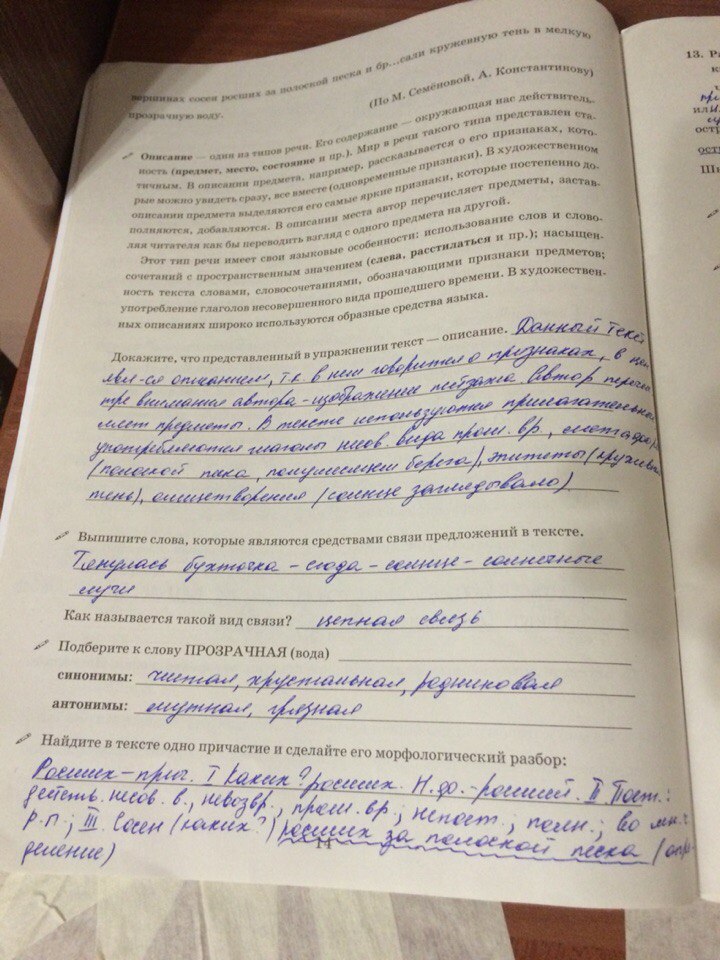 вершинах сосен росших за полоской песка и бр...сали кружевную тень в мелкую
прозрачную воду.
(По М. Семёновой, А. Константинову)
Описание — один из типов речи. Его содержание — окружающая нас действитель-
ность (предмет, место, состояние и пр.). Мир в речи такого типа представлен ста-
тичным. В описании предмета, например, рассказывается о его признаках, кото-
рые можно увидеть сразу, все вместе (одновременные признаки). В художественном
описании предмета выделяются его самые яркие признаки, которые постепенно до-
полняются, добавляются. В описании места автор перечисляет предметы, застав-
ляя читателя как бы переводить взгляд с одного предмета на другой.
Этот тип речи имеет свои языковые особенности: использование слов и слово-
сочетаний с пространственным значением (слева, расстилаться и пр.); насыщен-
ность текста словами, словосочетаниями, обозначающими признаки предметов;
употребление глаголов несовершенного вида прошедшего времени. В художествен-
ных описаниях широко используются образные средства языка.
Докажите, что представленный в упражнении текст — описание. Данный текст
явл-ся описанием, т.к. в нем говорится о признаках, в цен
тре внимания автора - изображение пейзажа. Автор перечис
ляет предметы. В тексте используются прилагательные
употребляются глаголы несов. вида прош. вр., метафоры
(полоской песка, полумесяцем берега), эпитеты (кружевную
тень), олицетворения (солнце заглядывало).
Выпишите слова, которые являются средствами связи предложений в тексте.
Тянулась бухточка - сюда - солнце - солнечные
лучи
Как называется такой вид связи? цепная связь
Подберите к слову ПРОЗРАЧНАЯ (вода)
синонимы: чистая, хрустальная, родниковая
антонимы: мутная, грязная
Найдите в тексте одно причастие и сделайте его морфологический разбор:
Росших - прич. I Каких? росших. Н.ф. - росший. II Пост.:
действ. несов. в., невозвр., прош. вр.; непост.; полн.; во мн. ч.
Р.п.; III Сосен (каких?) росших за полоской песка (опре
деление)
14
13.